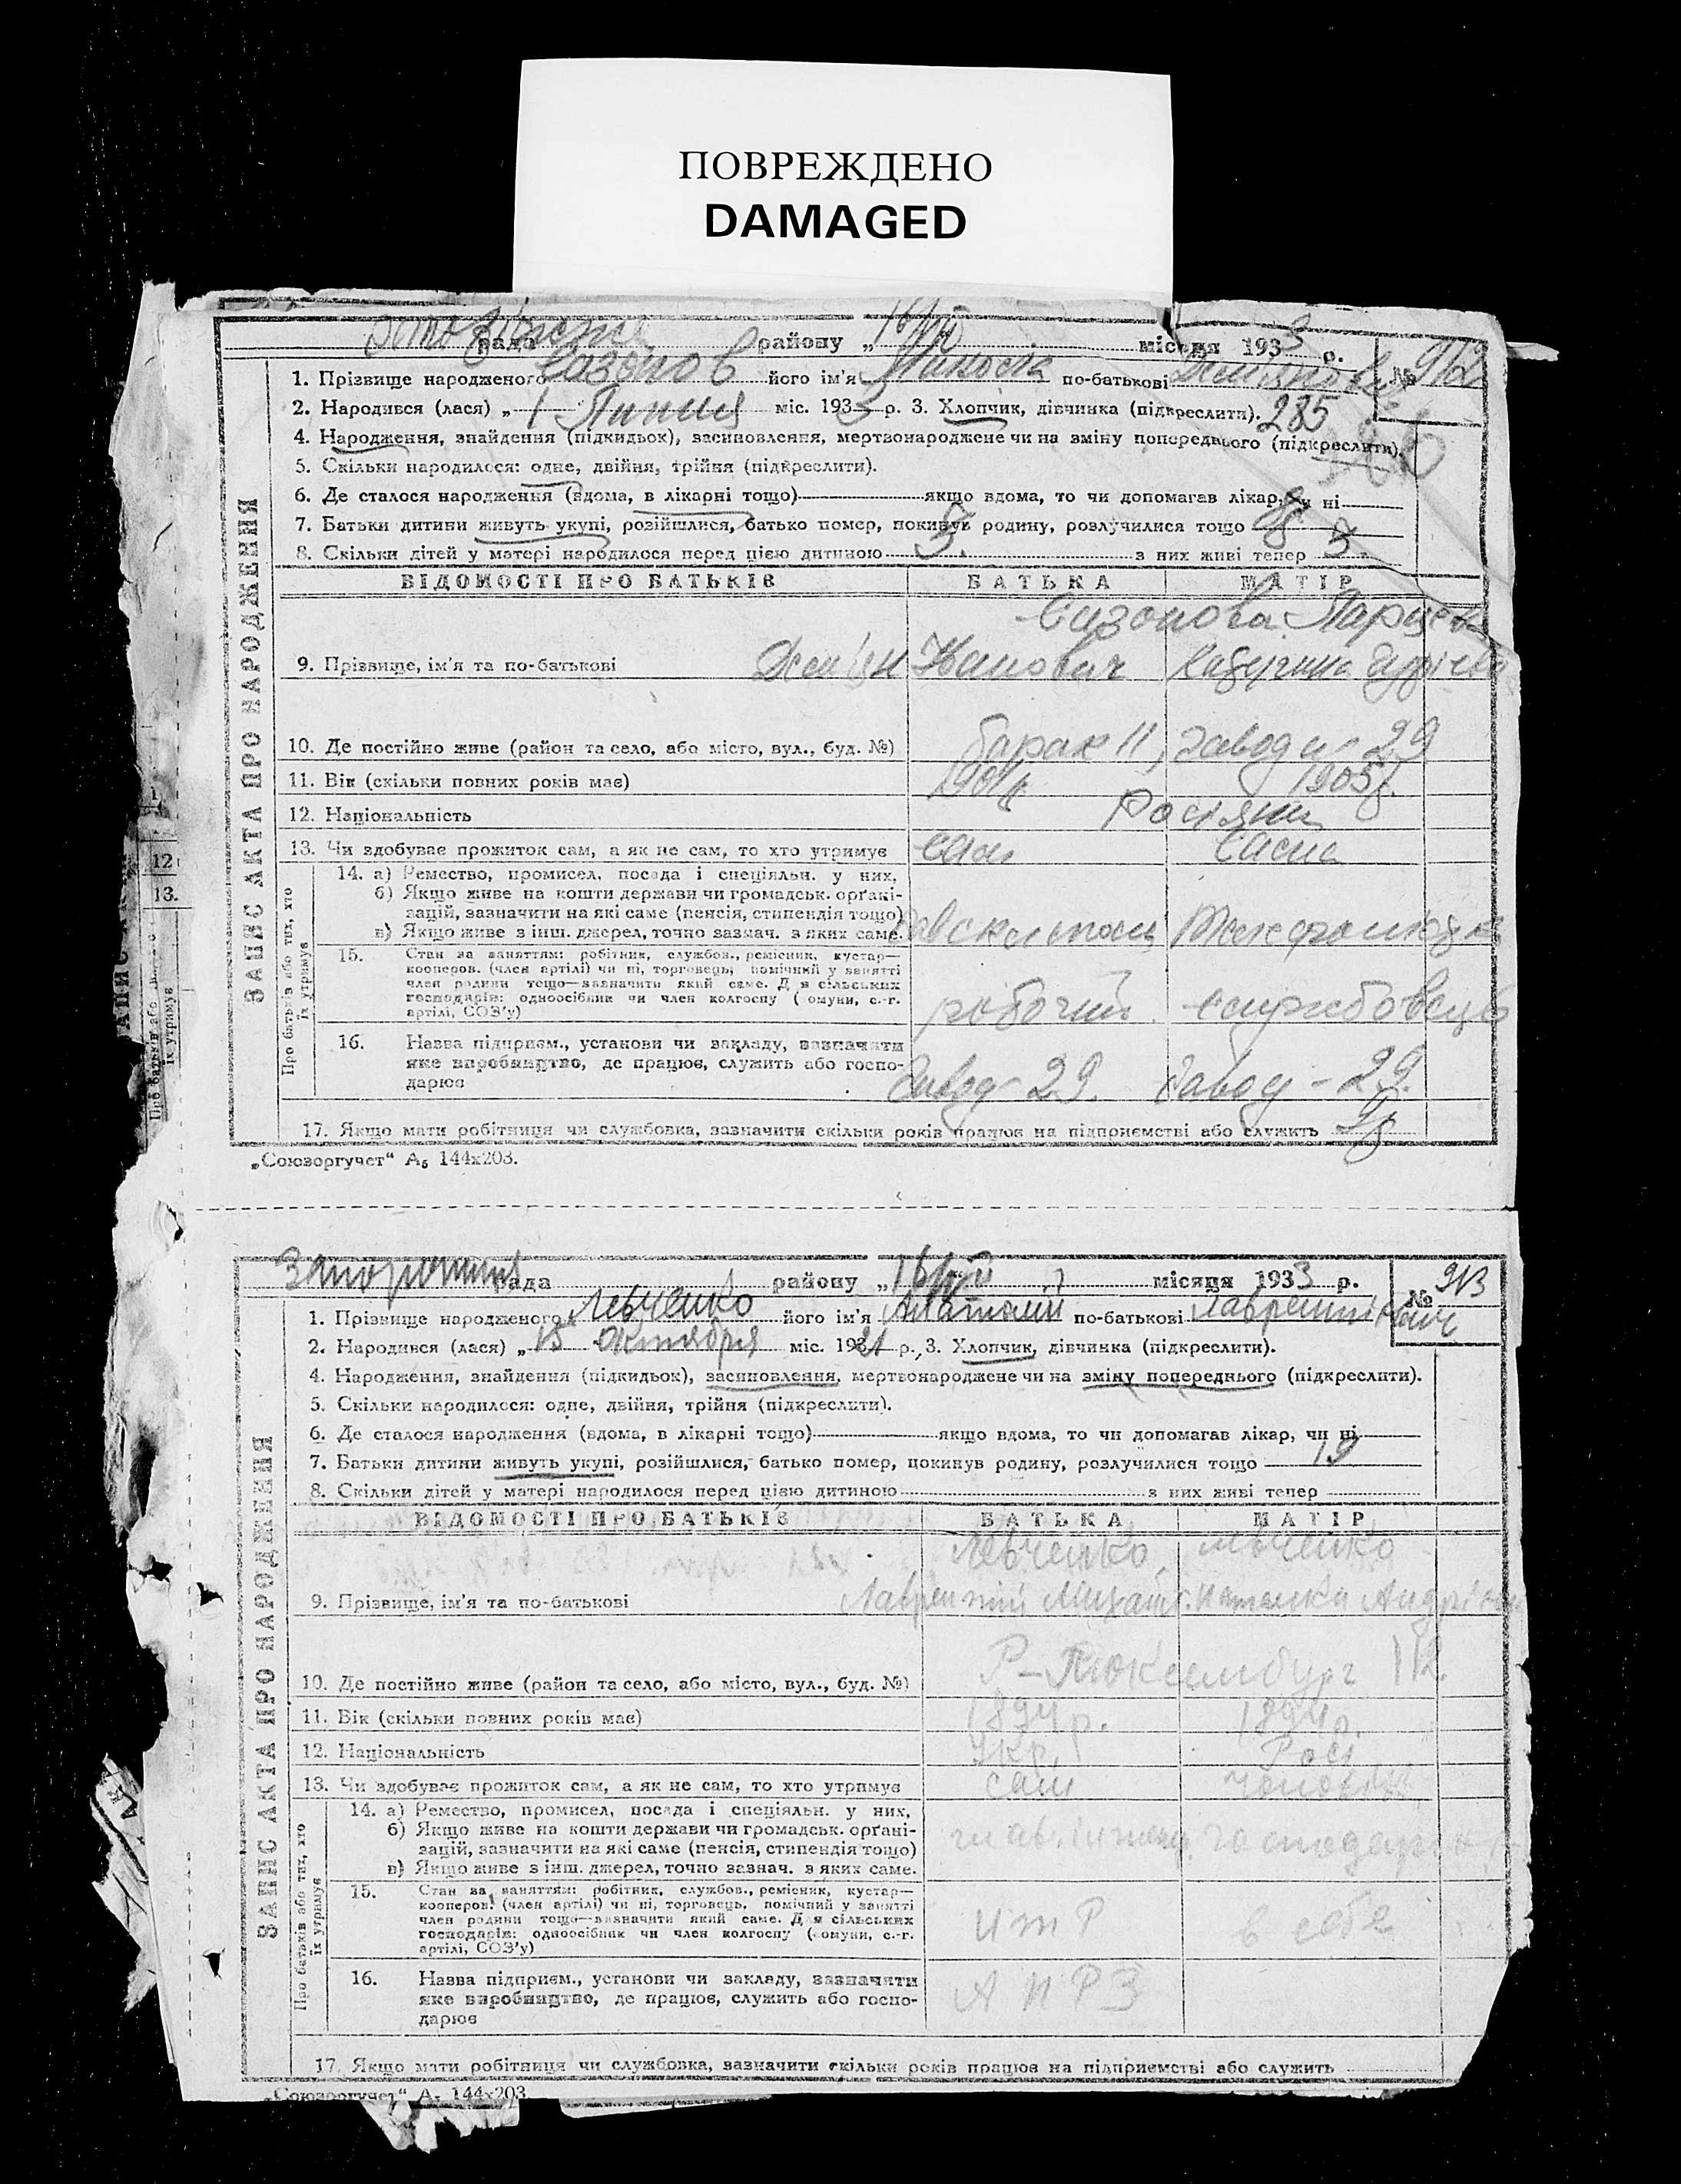 ПОВРЕЖДЕНО
DAMAGED
рада района „ місяця 1933 р. № 912
1. Прізвище народженого його ім'я по-батькові
2. Народився (лася) „ 1 Липня міс. 1933 р. 3. Хлопчик, дівчинка (підкреслити). 285
4. Народження, знайдення (підкидьок), засиновлення, мертвонароджене чи на зміну попереднього (підкреслити).
5. Скільки народилося: одне, двійня, трійня (підкреслити).
6. Де сталося народження (вдома, в лікарні тощо) якщо вдома, то чи допомагав лікар, чи ні
7. Батьки дитини живуть укупі, розійшлися, батько помер, покинув родину, розлучилися тощо
8. Скільки дітей у матері народилося перед цією дитиною 3. з них живі тепер 3
ЗАПИС АКТА ПРО НАРОДЖЕННЯ
ВІДОМОСТІ ПРО БАТЬКІВ БАТЬКА МАТІР
Сизонова
9. Прізвище, ім'я та по-батькові Іванович
10. Де постійно живе (район та село, або місто, вул., буд. №) барак 11, завод 29
11. Вік (скільки повних років має) 1905
12. Національність Росіяни
13. Чи здобуває прожиток сам, а як не сам, то хто утримує сам сама
Про батьків або тих, хто їх утримує
14. а) Ремество, промисел, посада і спеціяльн. у них,
б) Якщо живе на кошти держави чи громадськ. орґані-
зацій, зазначити на які саме (пенсія, стипендія тощо)
в) Якщо живе з інш. джерел, точно зазнач. з яких саме.
15. Стан за заняттям: робітник, службов., ремісник, кустар—
кооперов. (член артілі) чи ні, торговець, помічний у занятті
член родини тощо—зазначити який саме. Для сільських
господарів: одноосібник чи член колгоспу (комуни, с.-г.
артілі, СОЗ'у) робочий службовець
16. Назва підприєм., установи чи закладу, зазначити
яке виробництво, де працює, служить або госпо-
дарює Завод-29. Завод-29.
17. Якщо мати робітниця чи службовка, зазначити скільки років працює на підприємстві або служить
„Союзоргучет“ А₅ 144х203.
рада району „ місяця 1933 р. № 913
1. Прізвище народженого Левченко його ім'я Анатолій по-батькові Лаврентійович
2. Народився (лася) „ 15 октября міс. 193 р. 3. Хлопчик, дівчинка (підкреслити).
4. Народження, знайдення (підкидьок), засиновлення, мертвонароджене чи на зміну попереднього (підкреслити).
5. Скільки народилося: одне, двійня, трійня (підкреслити).
6. Де сталося народження (вдома, в лікарні тощо) якщо вдома, то чи допомагав лікар, чи ні
7. Батьки дитини живуть укупі, розійшлися, батько помер, покинув родину, розлучилися тощо 19
8. Скільки дітей у матері народилося перед цією дитиною з них живі тепер
ЗАПИС АКТА ПРО НАРОДЖЕННЯ
ВІДОМОСТІ ПРО БАТЬКІВ БАТЬКА МАТІР
Левченко Левченко
9. Прізвище, ім'я та по-батькові Лаврентій
10. Де постійно живе (район та село, або місто, вул., буд. №) Р-Люксембург 112.
11. Вік (скільки повних років має) 1894 р. 1894 р.
12. Національність Укр. Рос
13. Чи здобуває прожиток сам, а як не сам, то хто утримує сам чоловік
Про батьків або тих, хто їх утримує
14. а) Ремество, промисел, посада і спеціяльн. у них,
б) Якщо живе на кошти держави чи громадськ. орґані-
зацій, зазначити на які саме (пенсія, стипендія тощо)
в) Якщо живе з інш. джерел, точно зазнач. з яких саме.
15. Стан за заняттям: робітник, службов., ремісник, кустар—
кооперов. (член артілі) чи ні, торговець, помічний у занятті
член родини тощо—зазначити який саме. Для сільських
господарів: одноосібник чи член колгоспу (комуни, с.-г.
артілі, СОЗ'у) ИТР в себе
16. Назва підприєм., установи чи закладу, зазначити
яке виробництво, де працює, служить або госпо-
дарює
17. Якщо мати робітниця чи службовка, зазначити скільки років працює на підприємстві або служить
„Союзоргучет“ А₅ 144х203